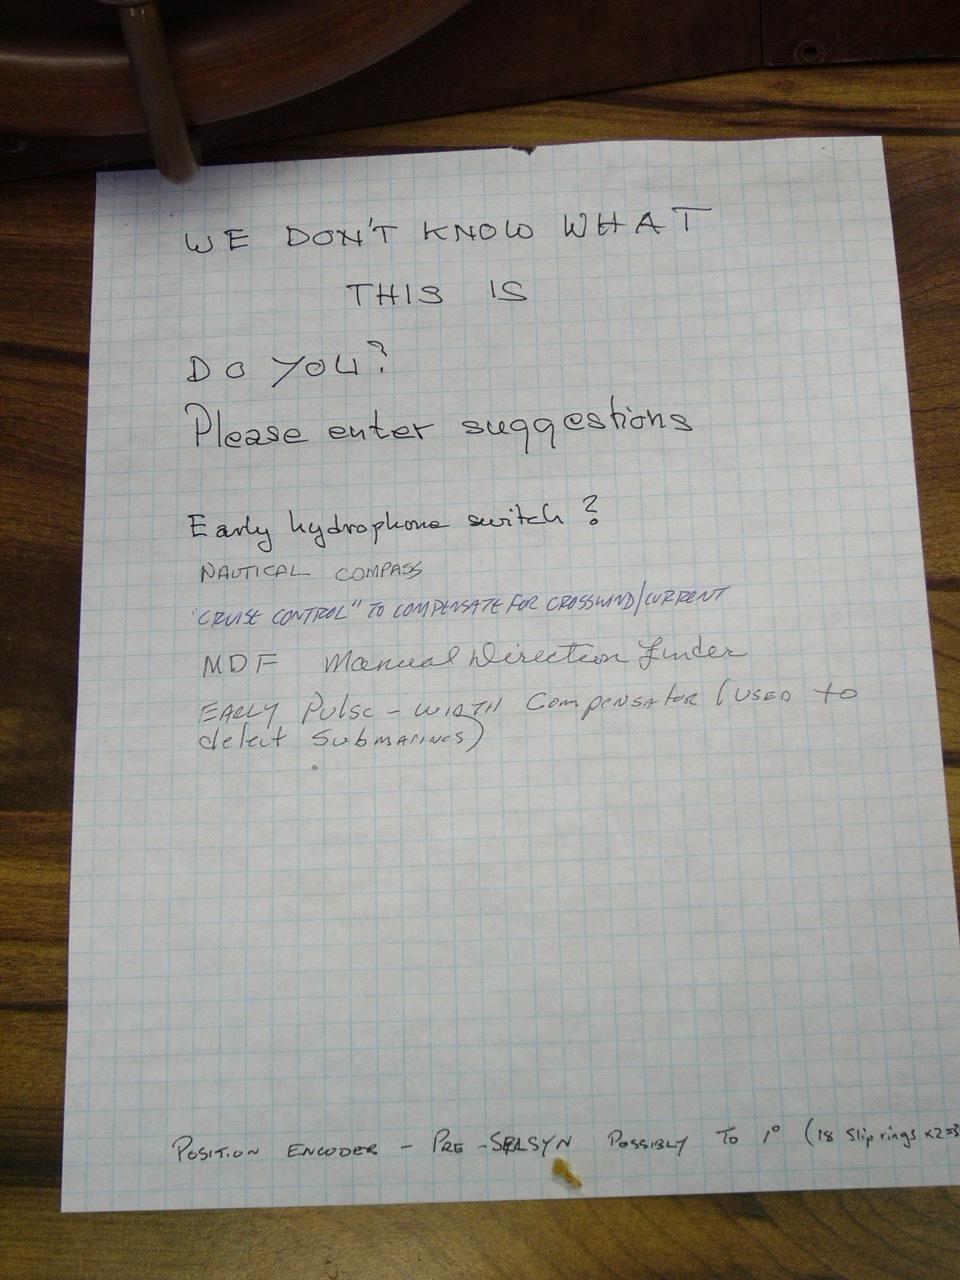 WE DON'T KNOW WHAT
THIS IS
DO YOU?
Please enter suggestions
Early hydrophone switch?
NAUTICAL COMPASS
"CRUISE CONTROL" TO COMPENSATE FOR CROSSWIND/CURRENT
MDF Manual Direction finder
EARLY Pulse-WIDTH Compensator (USED to
detect SUBMARINES)
POSITION ENCODER - PRE-SELSYN POSSIBLY TO 1° (18 slip rings x2=